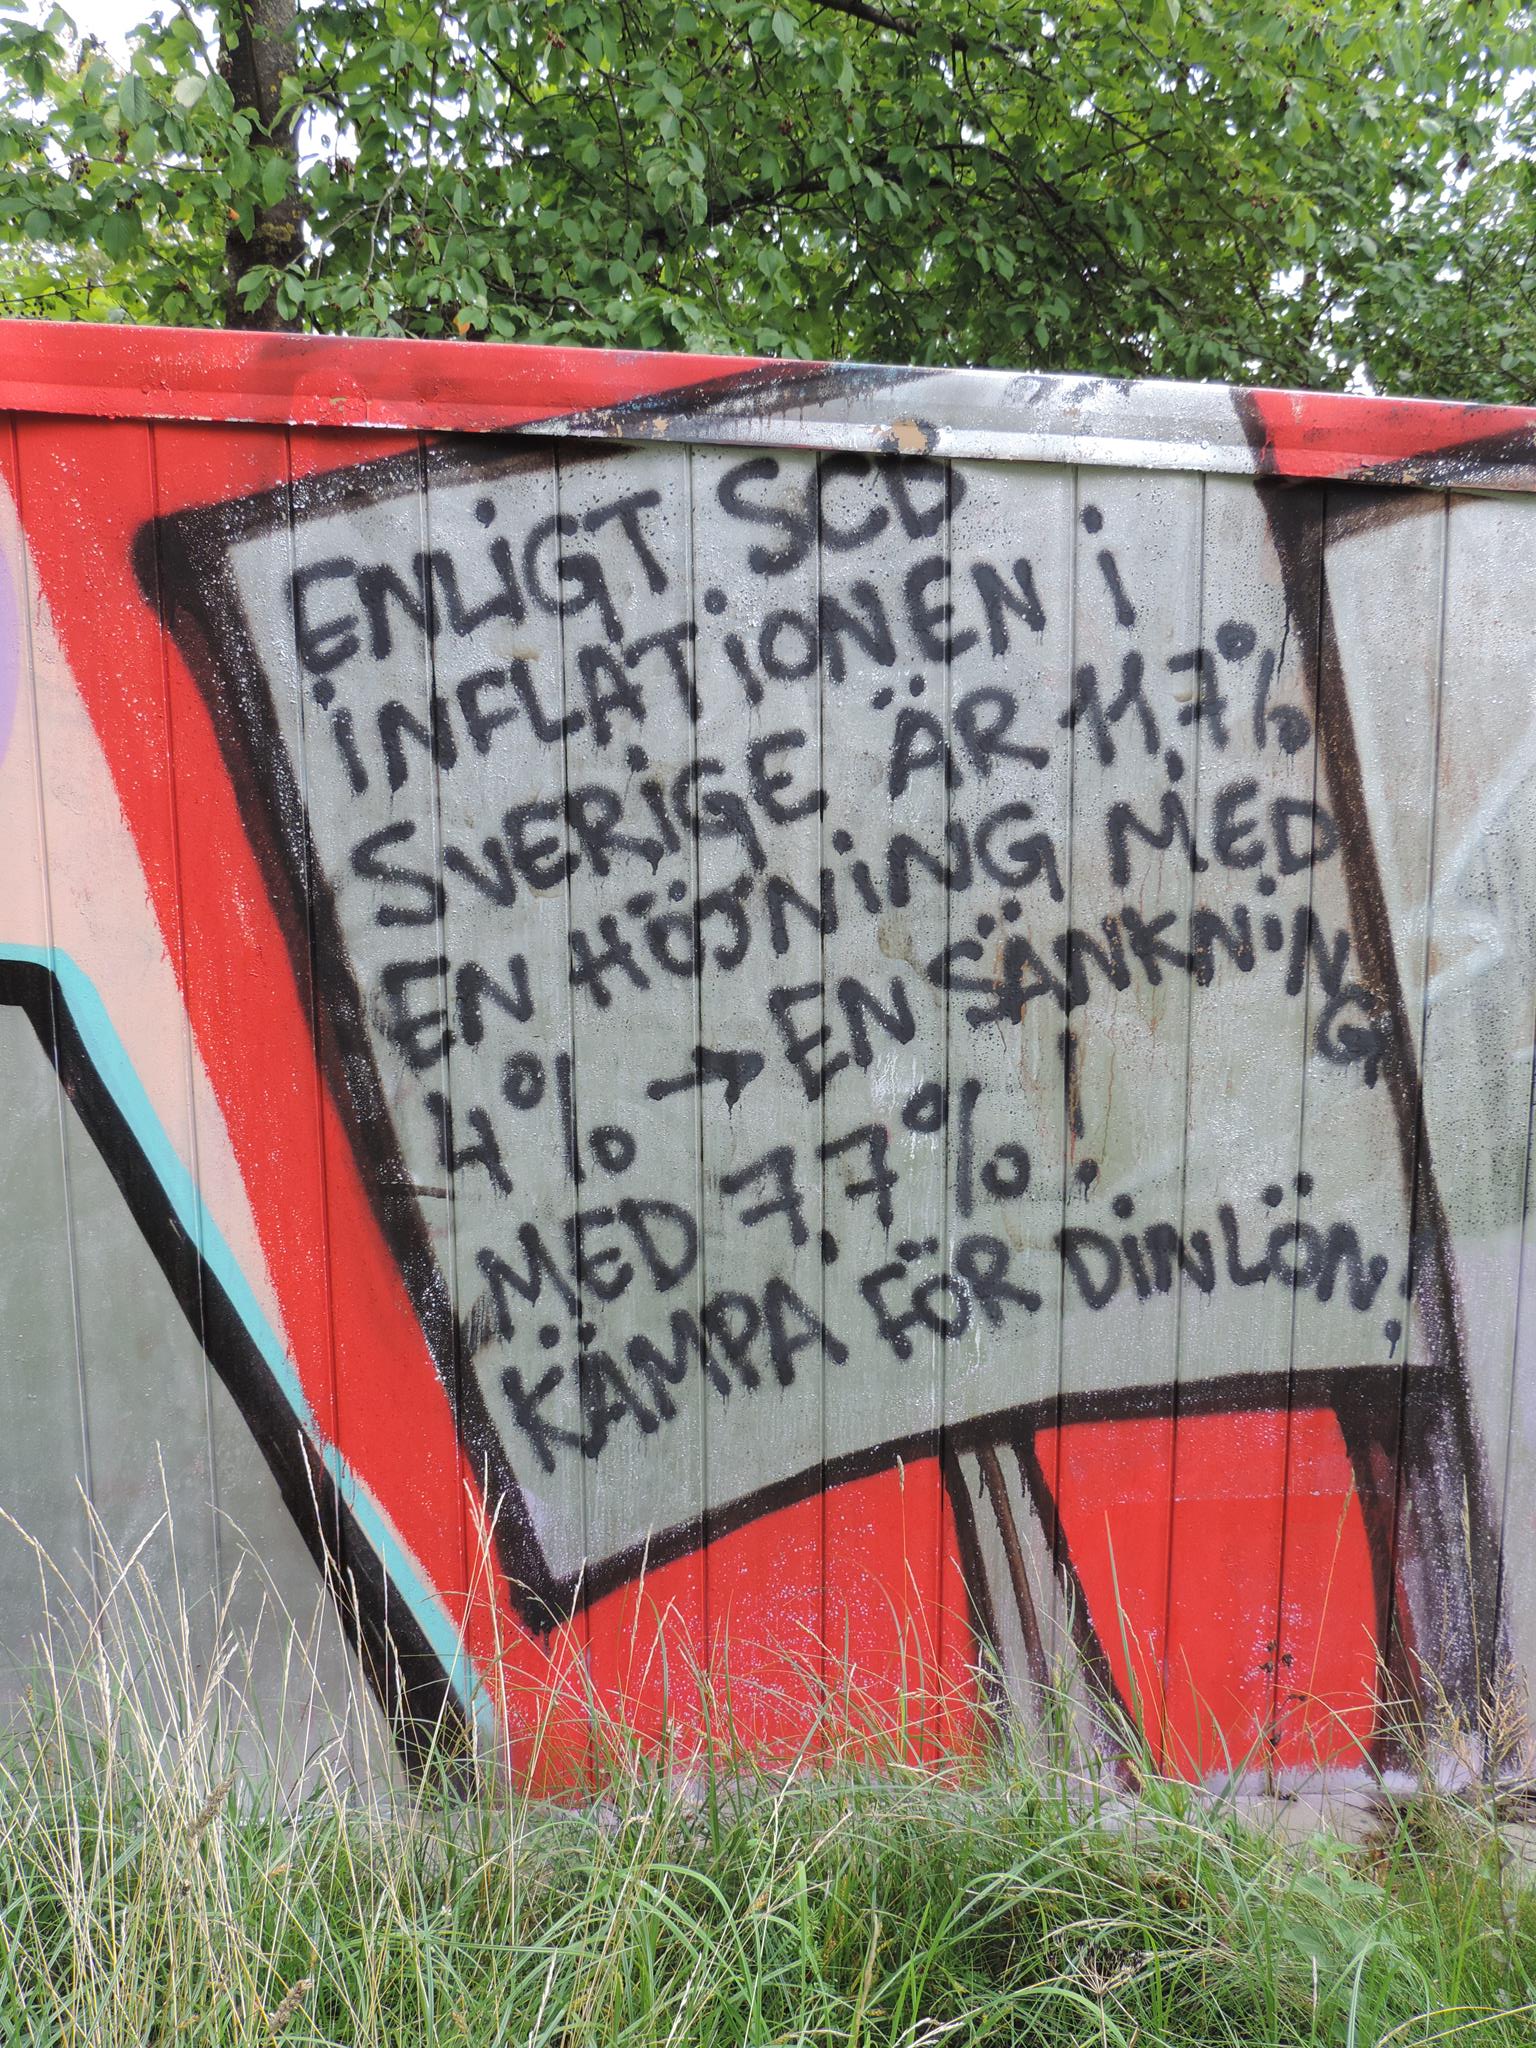 ENLIGT SCB
INFLATIONEN I
SVERIGE ÄR 11,7%
EN HÖJNING MED
4% → EN SÄNKNING
MED 7,7%!
KÄMPA FÖR DIN LÖN!